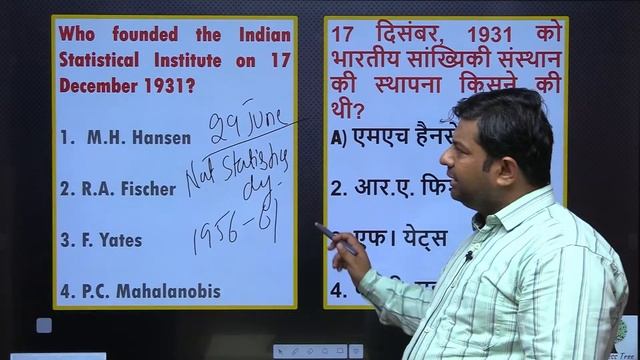 Who founded the Indian
Statistical Institute on 17
December 1931?
1. M.H. Hansen
2. R.A. Fischer
3. F. Yates
4. P.C. Mahalanobis
29 June
Nat Statistics
day.
1956-61
17 दिसंबर, 1931 को
भारतीय सांख्यिकी संस्थान
की स्थापना किसने की
थी?
A) एमएच
2. आर.ए.
एफ। येट्स
4.